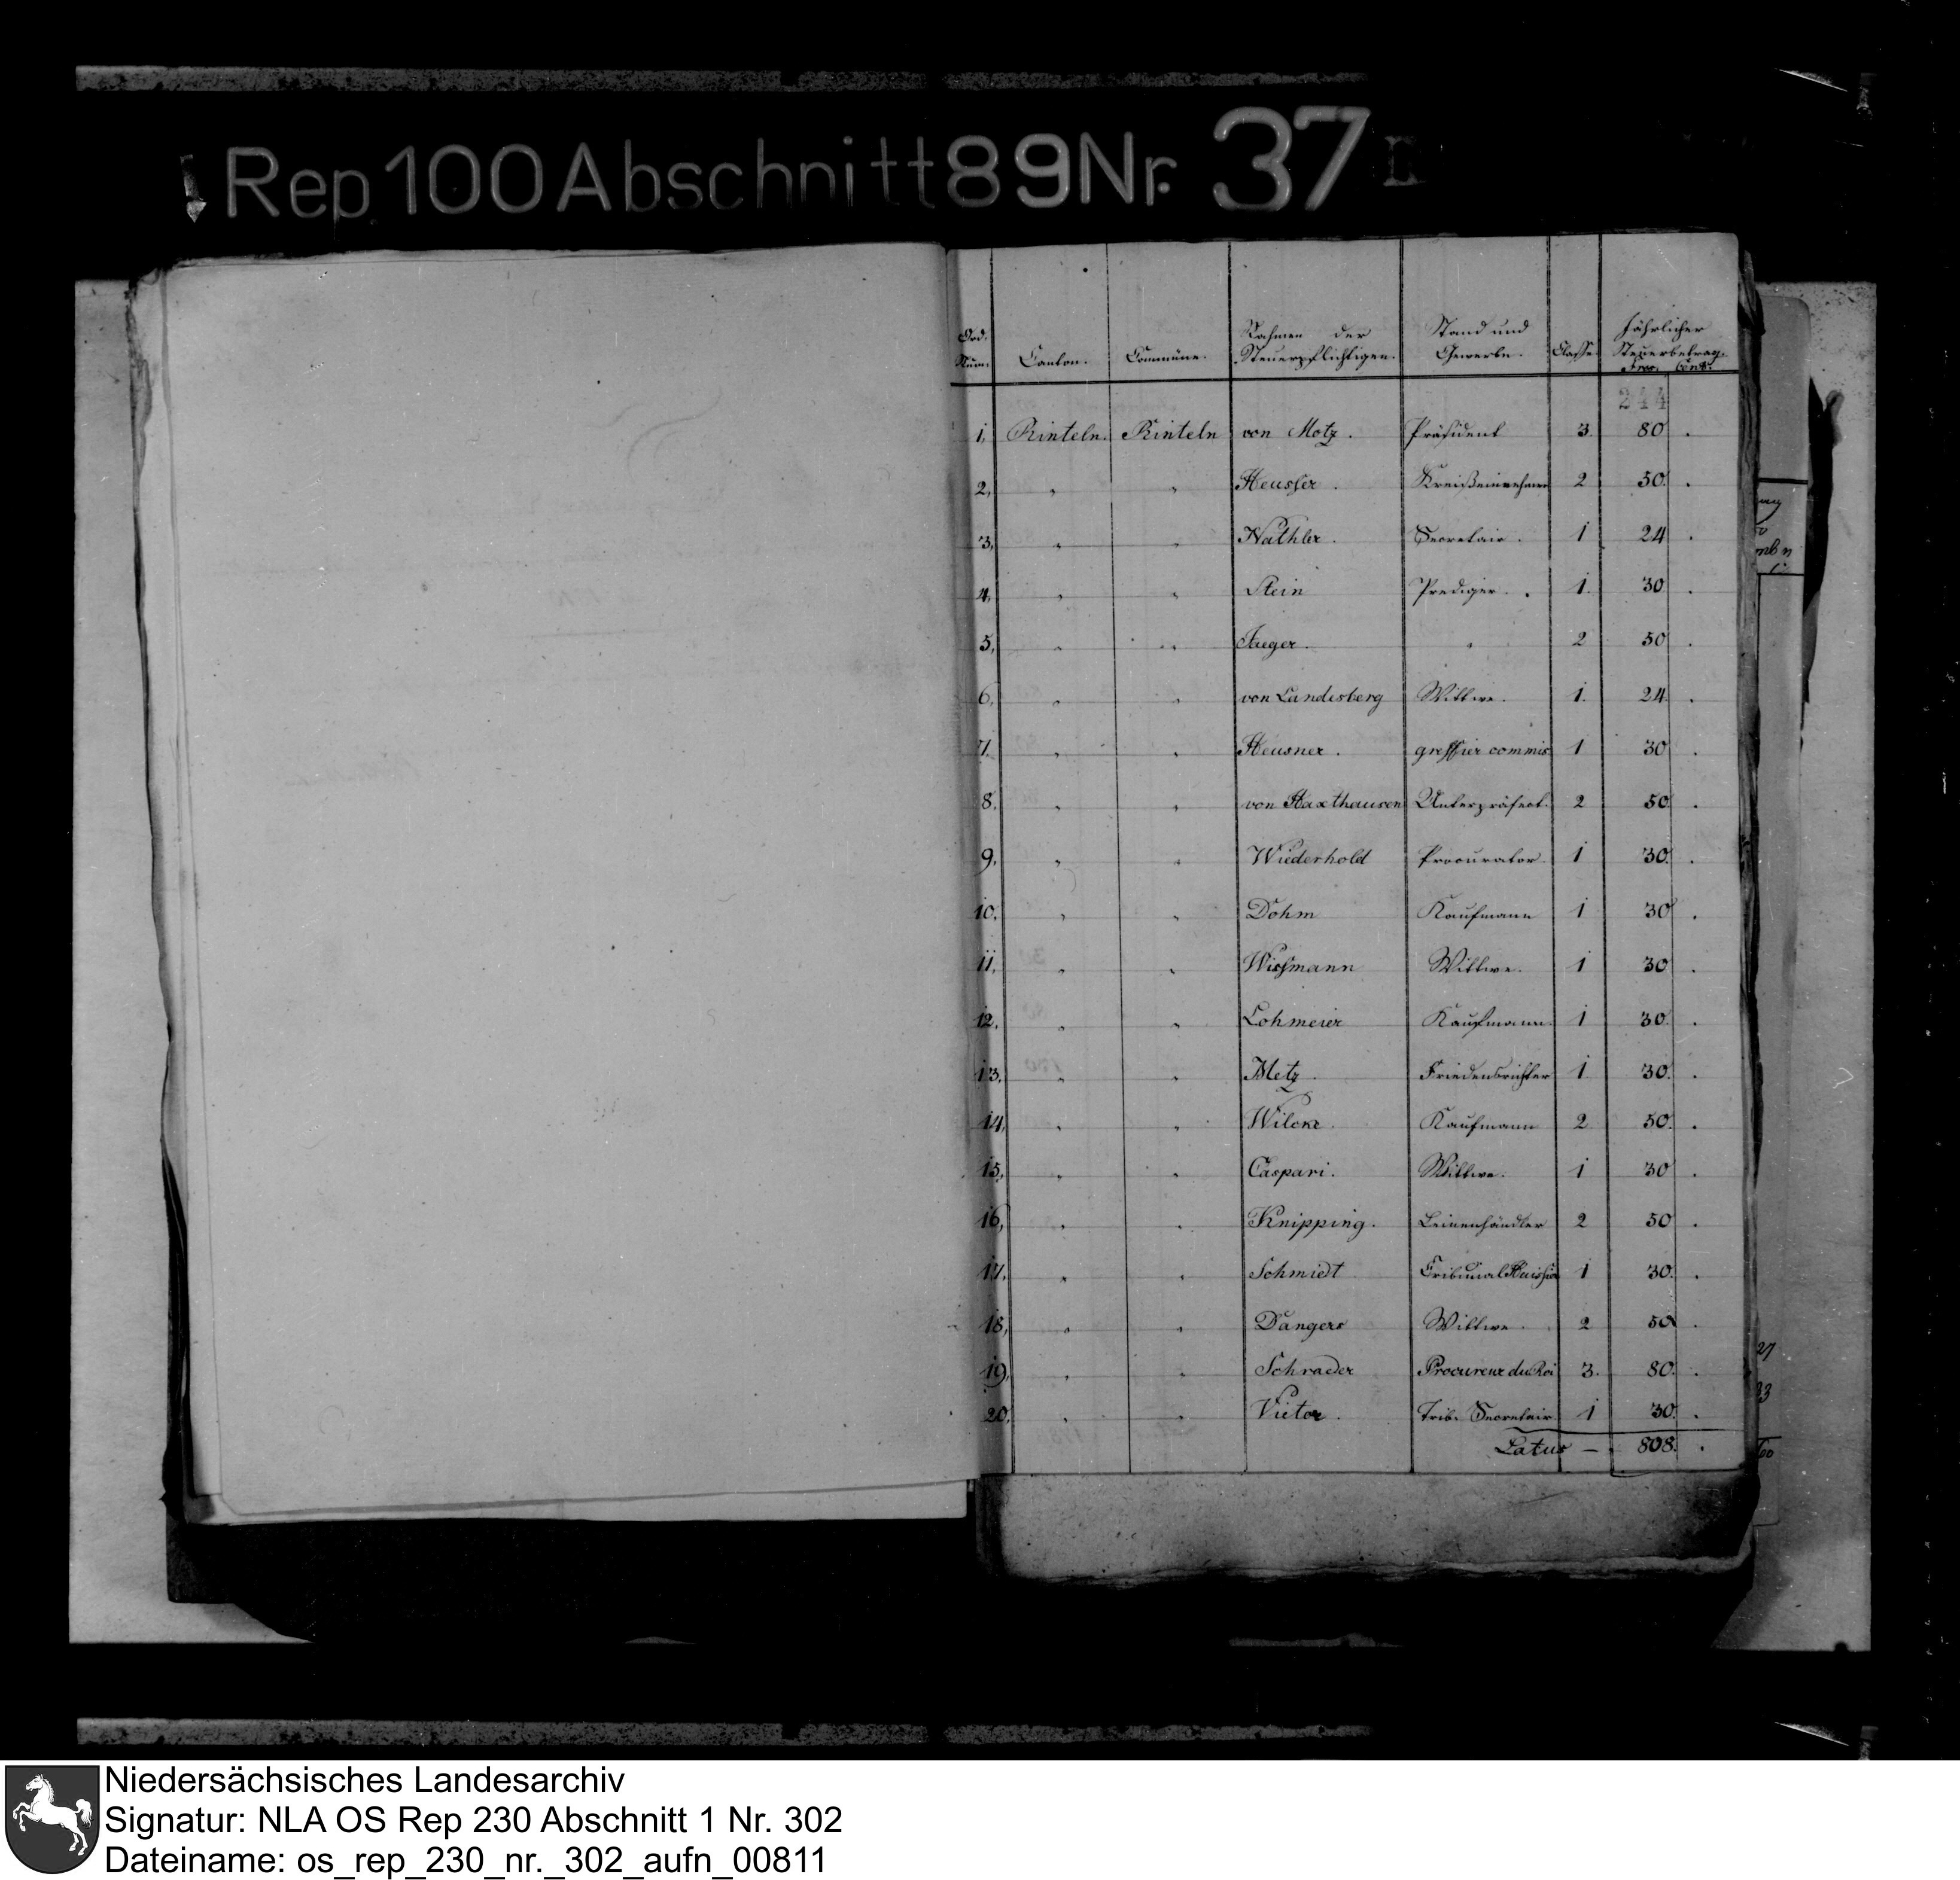 Rep 100 Abschnitt 89 Nr. 37 II
Ord. Num. Canton. Commüne. Nahmen der Steuerpflichtigen. Stand und Gewerbe. Classe Jährlicher Steuerbetrag. Frcs. Cent.
244
1, Rinteln. Rinteln von Motz. Präsident 3. 80 .
2, " " Heusser. Kreißeinnehmer 2 50. .
3, " " Secretair. 1 24 .
4, " " Stein Prediger. 1. 30 .
5, " " Jaeger. " 2 50 .
6, " " von Landesberg Wittwe. 1. 24 .
7. " " Heusner. greffier commis 1 30 .
8. " " von Haxthausen Unterpräfect. 2 50. .
9, " " Wiederhold Procurator 1 30. .
10. " " Dohm Kaufmann 1 30 .
11. " " Wissmann Wittwe. 1 30 .
12. " " Lohmeier Kaufmann. 1 30. .
13. " " Metz. Friedensrichter 1 30. .
14, " " Kaufmann 2 50. .
15. " " Caspari. Wittwe. 1 30 .
16, " " Knipping. Leinenhändler 2 50 .
17. " " Schmidt Tribunal Huissier 1 30. .
18, " " Dangers Wittwe. 2 50 .
19, " " Schraeder Procureur du Roi 3. 80. .
20. " " Vietor. Trib. Secretair 1 30. .
Latus — 808. .
27
33
Niedersächsisches Landesarchiv
Signatur: NLA OS Rep 230 Abschnitt 1 Nr. 302
Dateiname: os_rep_230_nr._302_aufn_00811